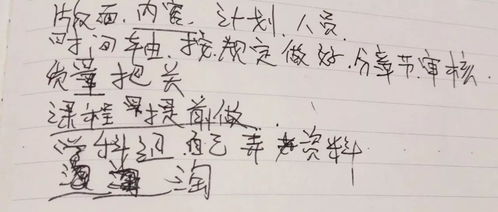 版面.内容.计划.人员.
时间轴.按规定做好.分章节审核.
质量把关
课程提前做.
学科组自己弄资料
淘